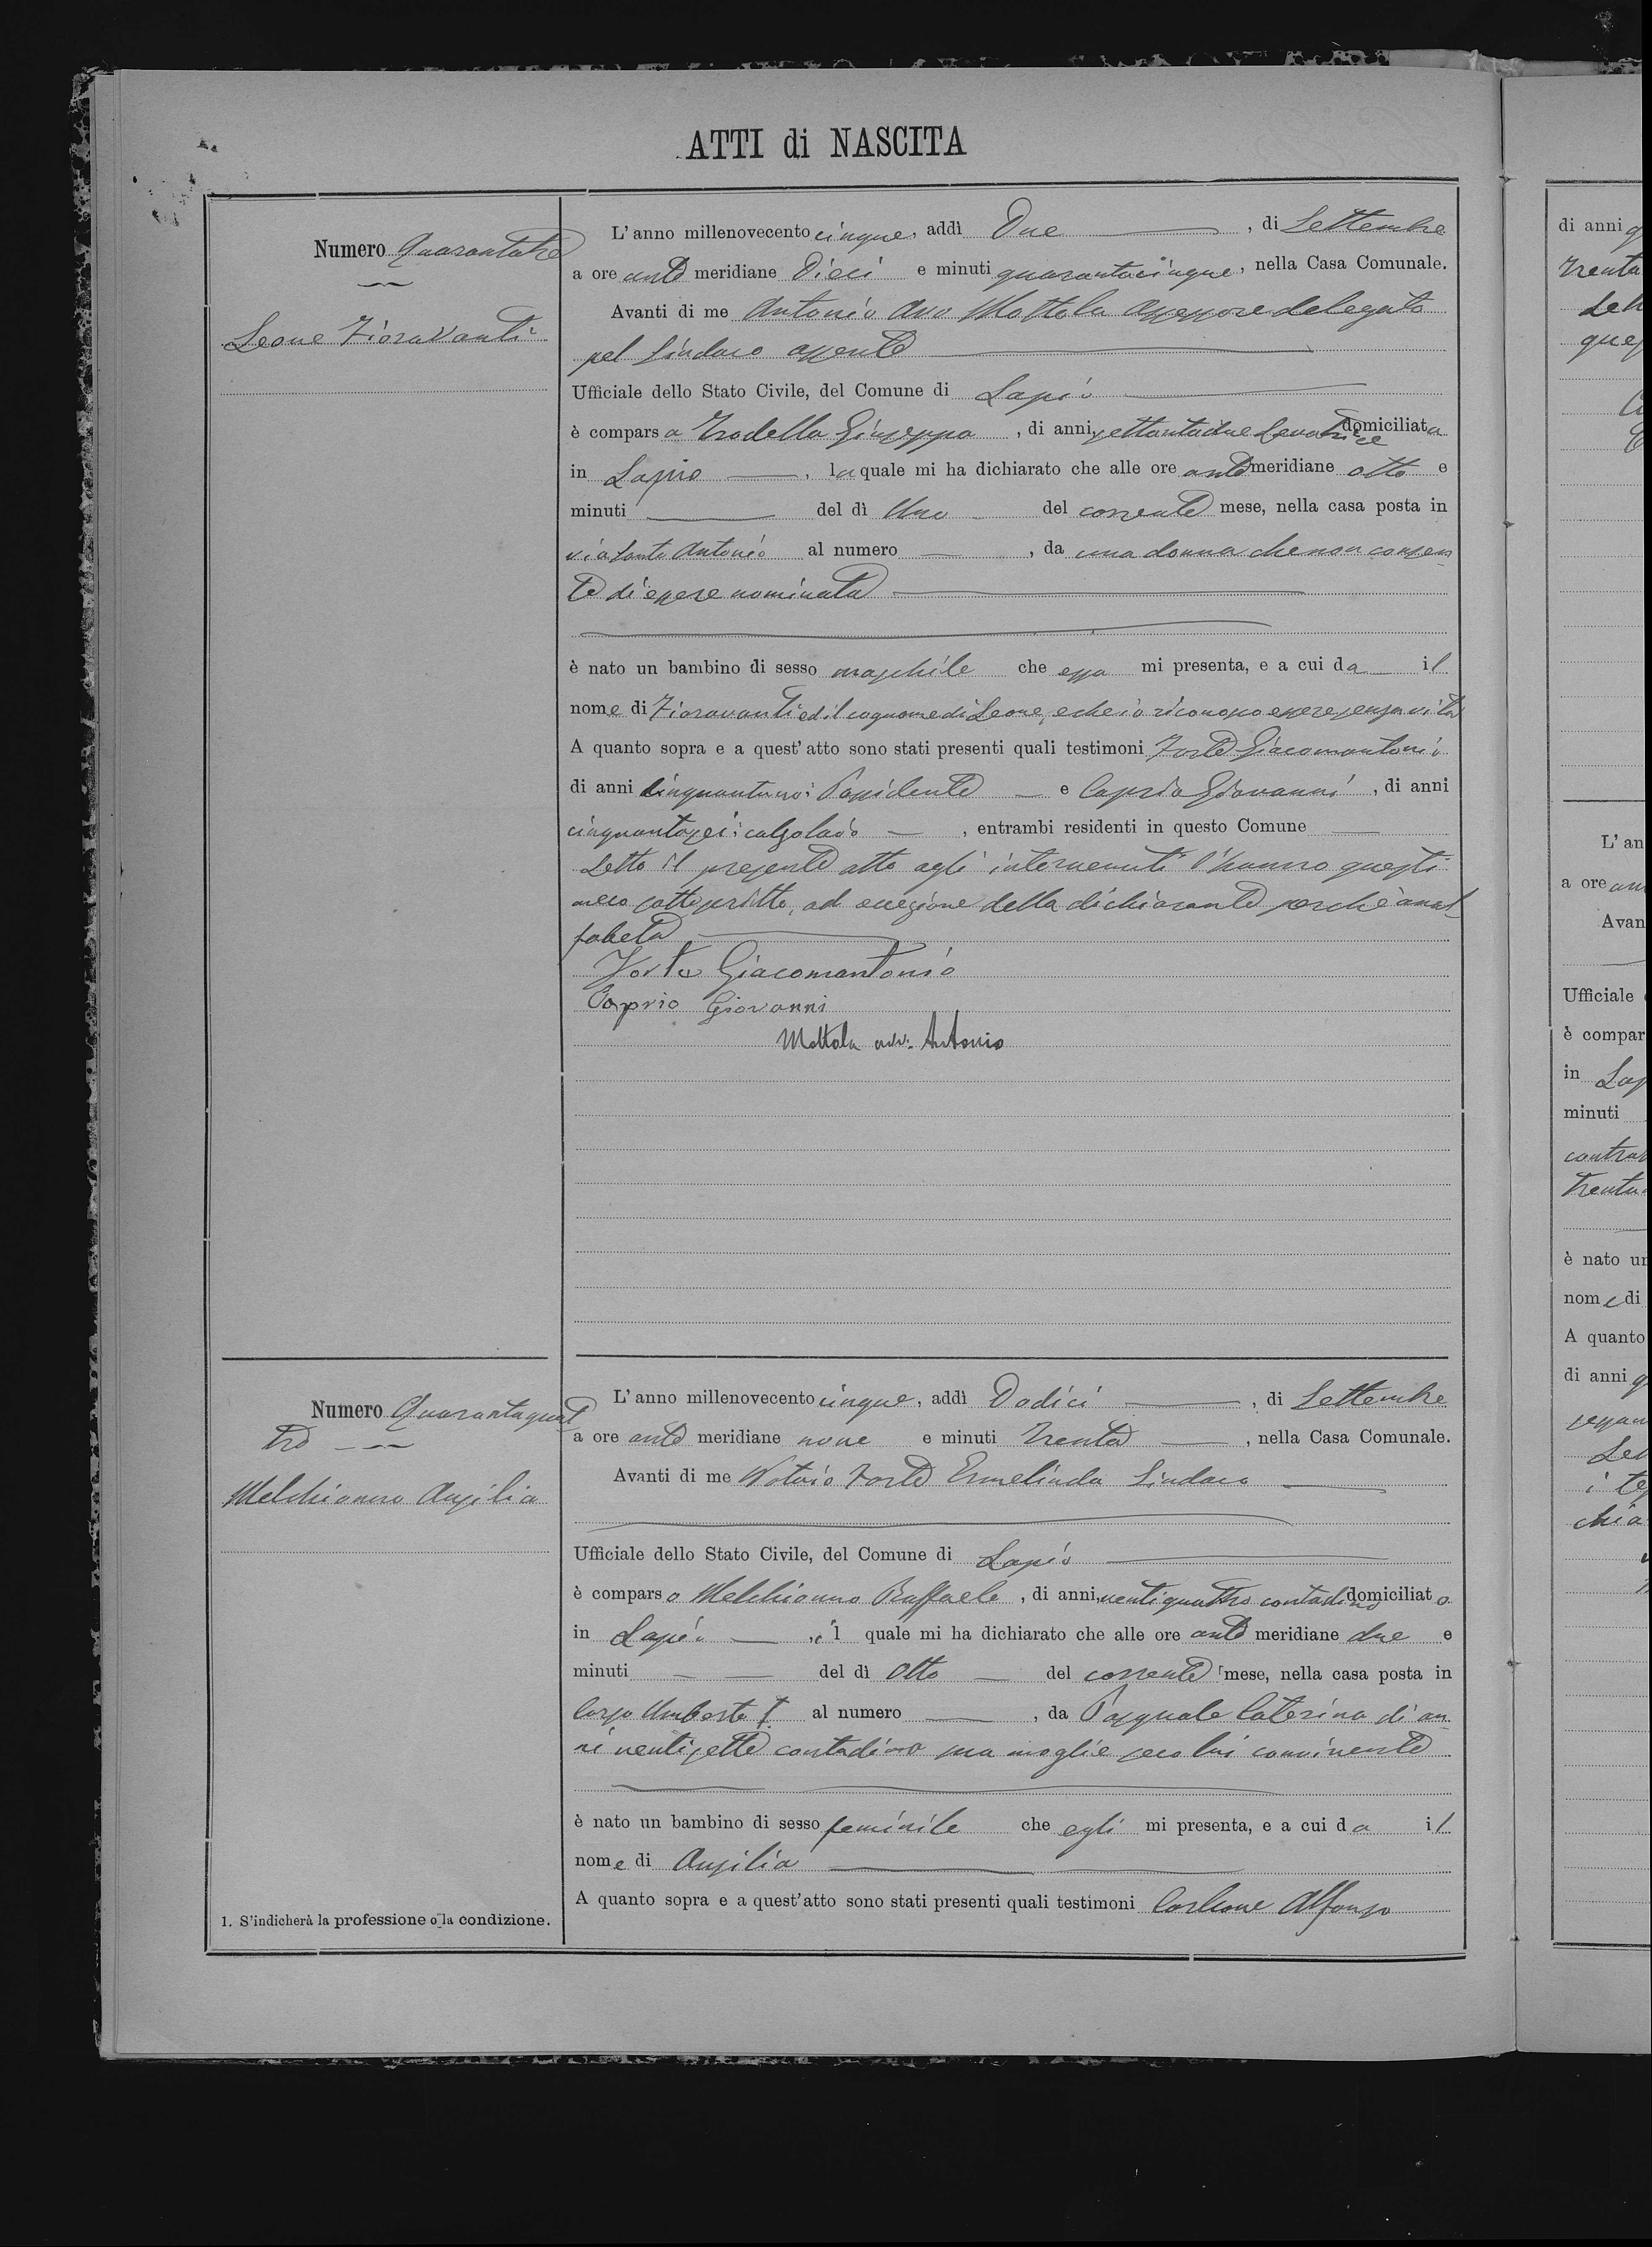 ATTI di NASCITA
Numero Quarantatre
Leone Fioravanti
L'anno millenovecento cinque, addì Due, di Settembre
a ore ante meridiane Dieci e minuti quarantacinque, nella Casa Comunale.
Avanti di me Antonio Avv Mottola assessore delegato
pel Sindaco assente
Ufficiale dello Stato Civile, del Comune di Lapio
è comparsa Trodella Giuseppa, di anni settantadue Levatrice domiciliata
in Lapio, la quale mi ha dichiarato che alle ore ante meridiane otto e
minuti del dì Uno del corrente mese, nella casa posta in
via Santo Antonio al numero, da una donna che non consen
te di essere nominata
è nato un bambino di sesso maschile che essa mi presenta, e a cui da il
nome di Fioravanti ed il cognome di Leone, e che io riconosco essere senza vita
A quanto sopra e a quest'atto sono stati presenti quali testimoni Forte Giacomantonio
di anni cinquantuno: Possidente e Caprio Giovanni, di anni
cinquantasei: calzolaio, entrambi residenti in questo Comune
Letto il presente atto agli intervenuti l'hanno questi
meco sottoscritto, ad eccezione della dichiarante perchè anal
fabeta
Forte Giacomantonio
Caprio Giovanni
Mottola avv. Antonio
Numero Quarantaquat
tro
Melchionno Ausilia
L'anno millenovecento cinque, addì Dodici, di Settembre
a ore ante meridiane nove e minuti Trenta, nella Casa Comunale.
Avanti di me Notaio Forte Ermelindo Sindaco
Ufficiale dello Stato Civile, del Comune di Lapio
è comparso Melchionno Raffaele, di anni ventiquattro contadino domiciliato
in Lapio, il quale mi ha dichiarato che alle ore ante meridiane due e
minuti del dì Otto del corrente mese, nella casa posta in
Corso Umberto I al numero, da Pasquale Caterina di an
ni ventisette contadina sua moglie seco lui convivente
è nato un bambino di sesso feminile che egli mi presenta, e a cui da il
nome di Ausilia
A quanto sopra e a quest'atto sono stati presenti quali testimoni Carbone Alfonso
1. S'indicherà la professione o la condizione.
di anni
trenta
L'an
a ore
Avan
Ufficiale
è compar
in Lap
minuti
contra
trenta
è nato un
nome di
A quanto
di anni